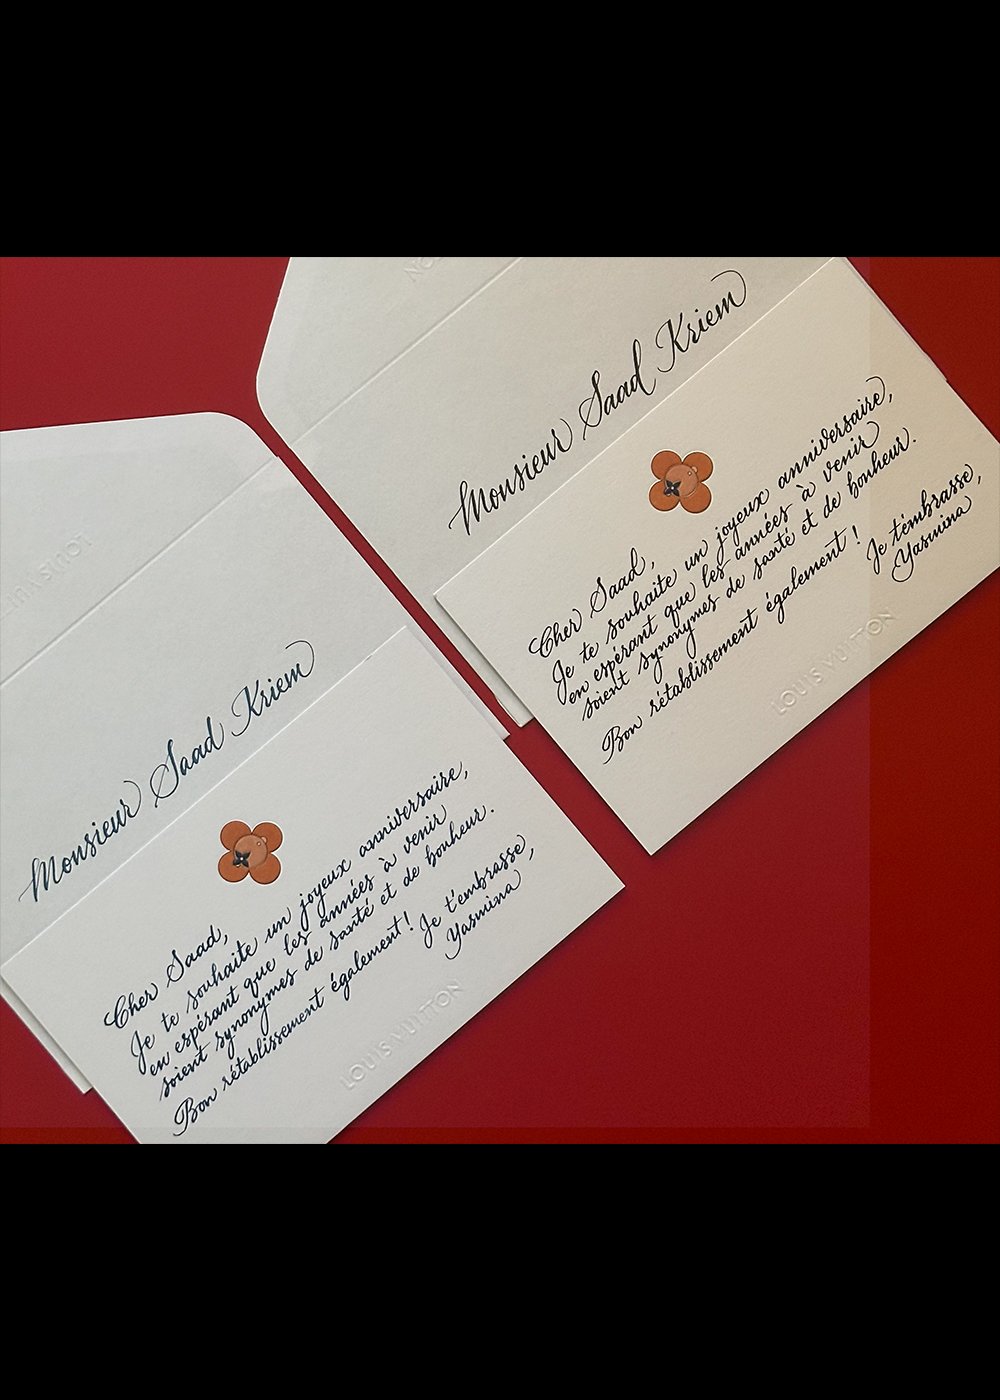 LOUIS VU
Monsieur Saad Kriem
Cher Saad,
Je te souhaite un joyeux anniversaire,
en espérant que les années à venir
soient synonymes de santé et de bonheur.
Bon rétablissement également !
Je t'embrasse,
Yasmina
LOUIS VUITTON
TON
Monsieur Saad Kriem
Cher Saad,
Je te souhaite un joyeux anniversaire,
en espérant que les années à venir
soient synonymes de santé et de bonheur.
Bon rétablissement également !
Je t'embrasse,
Yasmina
LOUIS VUITTON